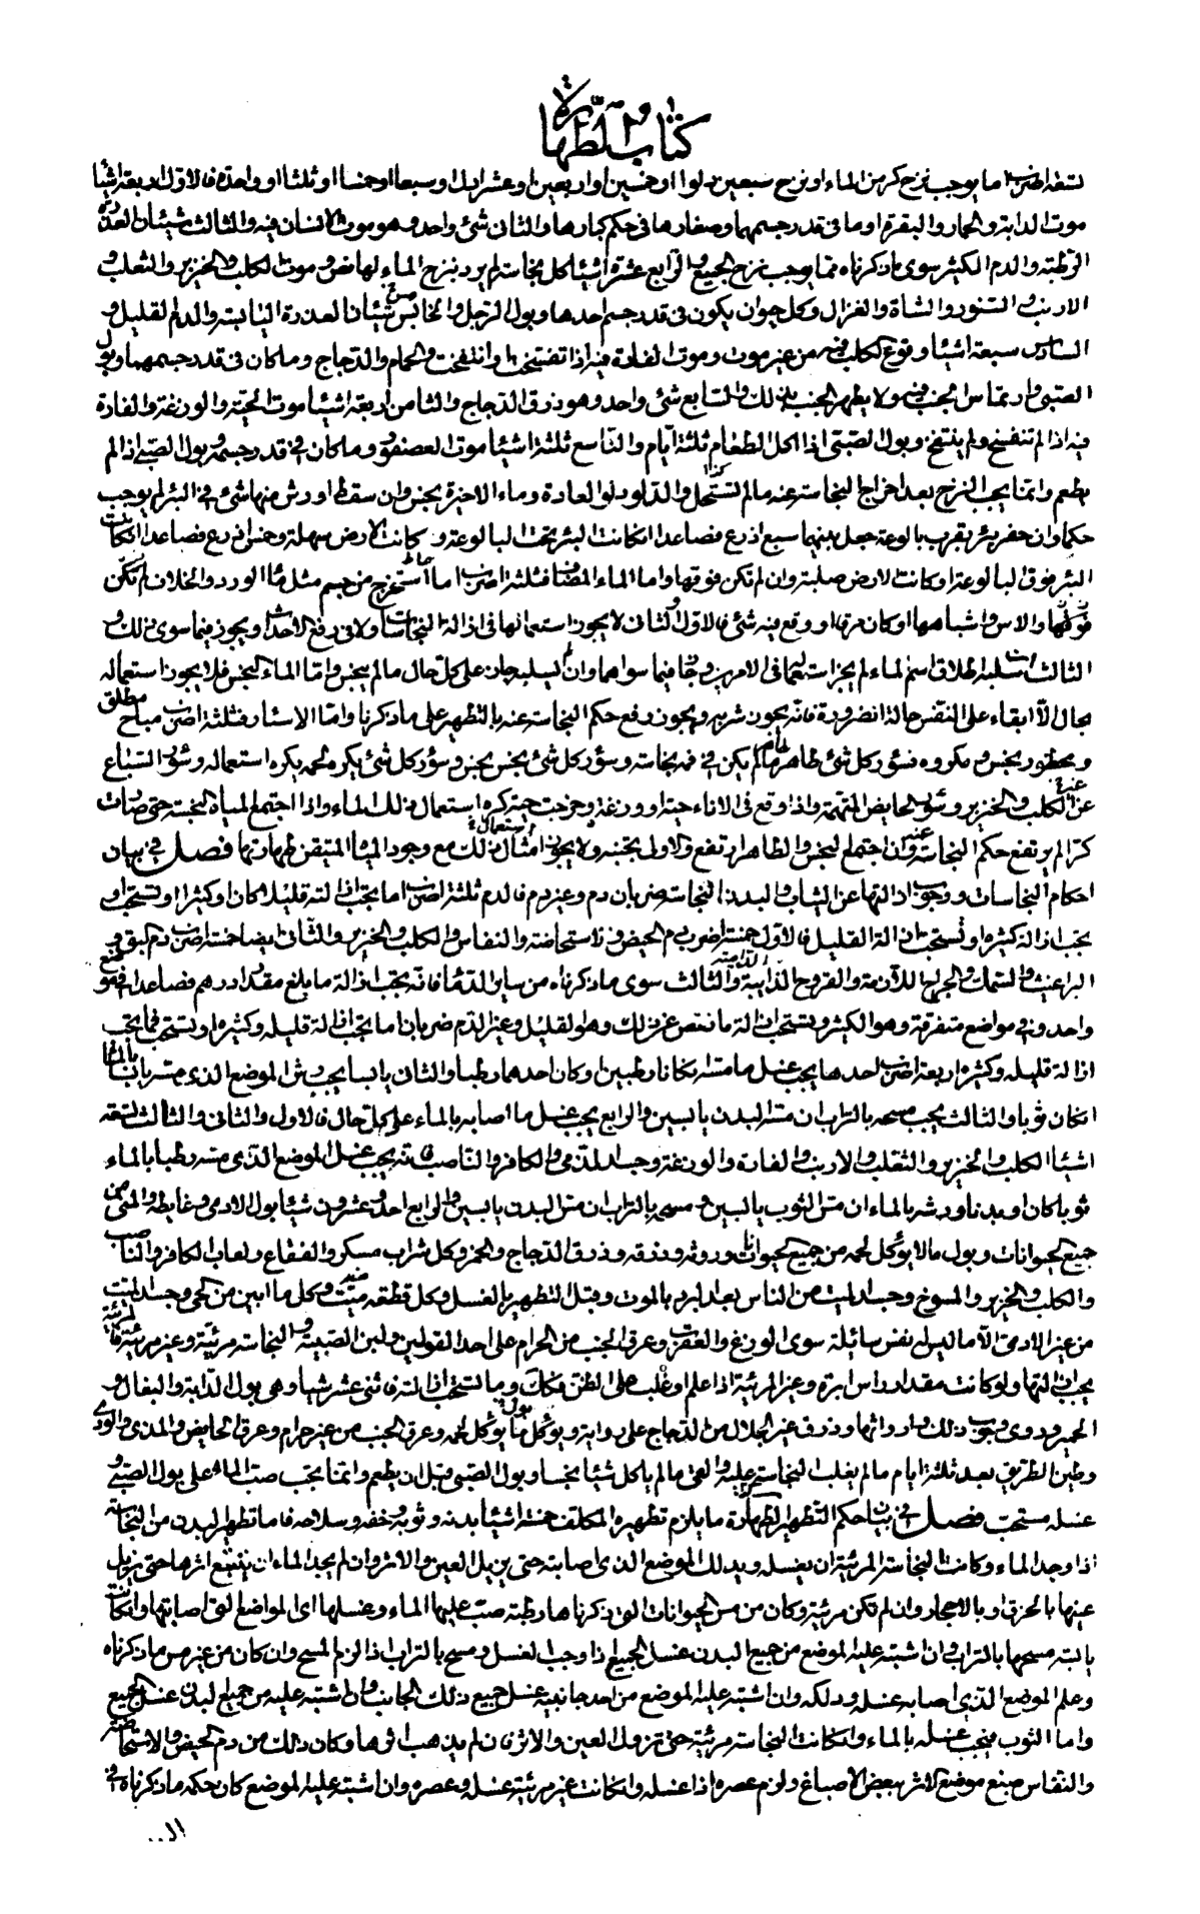 كتاب الطهارة
تسعة اضرب ما يوجب نزح كر من الماء او نزح سبعين دلوا او خمسين او اربعين او عشر دلاء او سبعا او خمسا او ثلثا او واحدة فالاول اربعة اشيا
موت الدابة والحمار والبقرة او ما فى قدر جسمها وصغارها فى حكم كبارها والثانى شئ واحد وهو موت الانسان فيه والثالث شيئان العذرة
الرطبة والدم الكثير سوى ما ذكرناه مما يوجب نزح الجميع والرابع عشرة اشيا كل نجاسة لم يرد بنزح الماء لها نص وموت الكلب والخنزير والثعلب و
الارنب والسنور والشاة والغزال وكل حيوان يكون فى قدر جسم احدها وبول الرجل والخامس شيئان العذرة اليابسة والدم القليل و
السادس سبعة اشيا وقوع الكلب فيه من غير موت وموت الفارة فيه اذا تفسخت او انتفخت والحمام والدجاج وما كان فى قدر جسمهما وبول
الصبى وارتماس الجنب فيه ولا يطهر الجنب بذلك والسابع شئ واحد وهو ذرق الدجاج والثامن اربعة اشيا موت الحية والوزغة والفارة
فيه اذا لم تنفسخ ولم ينتفخ وبول الصبى اذا اكل الطعام ثلثة ايام والتاسع ثلثة اشيا موت العصفور وما كان فى قدر جسمه وبول الصبى اذا لم
يطعم وانما يجب النزح بعد اخراج النجاسة عنه ما لم تستحل والدلو دلو العادة وماء الاخيرة نجس وان سقط او رش منها شئ فى البئر لم يوجب
حكما وان حفر بئر بقرب بالوعة جعل بينهما سبع اذرع فصاعدا ان كانت البئر تحت البالوعة وكانت الارض سهلة وخمس اذرع فصاعدا ان كانت
البئر فوق البالوعة او كانت الارض صلبة وان لم تكن فوقها واما الماء المضاف فثلثة اضرب اما استخرج من جسم مثل ماء الورد والخلاف
والاس واشباهها او كان مرقا او وقع فيه شئ فالاول والثانى لا يجوز استعمالها فى ازالة النجاسات ولا فى رفع الاحداث ويجوز فيما سوى ذلك و
الثالث ان سلبه اطلاق اسم الماء لم يجز استعماله فى الامرين وجاز فيما سواهما وان لم يسلبه جاز على كل حال ما لم ينجس واما الماء النجس فلا يجوز استعماله
بحال الا ابقاء على النفس حالة الضرورة فانه يجوز شربه ويجوز رفع حكم النجاسة عنه بالتطهير على ما ذكرنا واما الاسئار فثلثة اضرب مباح مطلق
ومحظور نجس ومكروه فسؤر كل شئ طاهر ما لم يكن فى فمه نجاسة وسؤر كل شئ نجس نجس وسؤر كل شئ يكره لحمه يكره استعماله وسؤر السباع
غير الكلب والخنزير وسؤر الحايض المتهمة واذا وقع فى الاناء حية او وزغة وخرجت حية كره استعمال ذلك الماء واذا اجتمع المياه النجسة حتى صارت
كرا لم يرتفع حكم النجاسة عنه وان اجتمع النجس والطاهر ارتفع والاولى تجنبه ولا يجوز استعمال امثال ذلك مع وجود المياه المتيقن طهارتها فصل فى بيان
احكام النجاسات ووجوب ازالتها عن الثياب والبدن النجاسة ضربان دم وغير دم فالدم ثلثة اضرب اما يجب ازالته قليلا كان او كثيرا او تستحب او
يجب ازالة كثيره او تستحب ازالة القليل فالاول خمسة اضرب دم الحيض والاستحاضة والنفاس والكلب والخنزير والثانى ايضا خمسة اضرب دم البق و
البراغيث والسمك والجراح اللازمة والقروح الدامية والثالث سوى ما ذكرناه من ساير الدماء فانه يجب ازالة ما بلغ مقدار درهم فصاعدا فى موضع
واحد دون مواضع متفرقة وهو الكثير ويستحب ازالة ما نقص عن ذلك وهو القليل وغير الدم ضربان اما يجب ازالة قليله وكثيره او تستحب فما يجب
ازالة قليله وكثيره اربعة اضرب احدها يجب غسل ما مسه ان كانا رطبين او كان احدهما رطبا والثانى يابسا يجب رش الموضع الذى مسه يابسا بالماء
ان كان ثوبا والثالث يجب مسحه بالتراب ان مس البدن يابسين والرابع يجب غسل ما اصابه بالماء على كل حال فالاول والثانى والثالث تسعة
اشيا الكلب والخنزير والثعلب والارنب والفارة والوزغة وجسد الذمى والكافر والناصب فانه يجب غسل الموضع الذى مسه رطبا بالماء
ثوبا كان او بدنا ورشه بالماء ان مس الثوب يابسين ومسحه بالتراب ان مس البدن يابسين والرابع احد وعشرون شيئا بول الادمى وغايطه والمنى من
جميع الحيوانات وبول ما لا يؤكل لحمه من جميع الحيوانات وروثه وذرقه وذرق الدجاج والخمر وكل شراب مسكر والفقاع ولعاب الكافر والناصب
والكلب والخنزير والمسوخ وجسد الميت من الناس بعد البرد بالموت وقبل التطهير بالغسل وكل قطعة ميتة وكل ما ابين من الحى وجسد الميت
من غير الادمى الا ما ليس له نفس سائلة سوى الوزغ والعقرب وعرق الجنب من الحرام على احد القولين ولبن الصبية والنجاسة مرئية وغير مرئية فالمرئية
يجب ازالتها ولو كانت مقدار راس ابرة وغير المرئية اذا علم او غلب على الظن فكذلك وما تستحب ازالته فاثنى عشر شيا وهى بول الدابة والبغال و
الحمير وروى وجوب ذلك وارواثها وذرق غير الجلال من الدجاج على رواية وبول ما يؤكل لحمه وعرق الجنب من غير حرام وعرق الحايض والمذى والودى
وطين الطريق بعد ثلثة ايام ما لم يغلب النجاسة عليه والقئ ما لم ياكل شيئا نجسا وبول الصبى قبل ان يطعم وانما يجب صب الماء على بول الصبى و
غسله مستحب فصل فى بيان حكم التطهير الطهارة ما يلزم تطهيره المكلف خمسة اشيا بدنه وثوبه وخفه وسلاحه فاما تطهير البدن من النجاسة
اذا وجد الماء وكانت النجاسة المرئية ان يغسله ويدلك الموضع الذى اصابته حتى يزيل العين والاثر وان لم يجد الماء ان يتتبع اثرها حتى يزيل
عينها بالخرق او بالاحجار وان لم تكن مرئية وكان من مس الحيوانات التى ذكرناها رطبة صب عليها الماء وغسلها اى المواضع التى اصابتها وان كانت
يابسة مسحها بالتراب وان اشتبه عليه الموضع من جميع البدن غسل الجميع اذا وجب الغسل ومسح بالتراب اذا لزم المسح وان كان من غير مس ما ذكرناه
وعلم الموضع الذى اصابه غسله ودلكه وان اشتبه عليه الموضع من احد جانبيه غسل جميع ذلك الجانب وان اشتبه عليه من جميع البدن غسل الجميع
واما الثوب فيجب غسله بالماء وان كانت النجاسة مرئية حتى تزول العين والاثر فان لم يذهب اثرها وكان ذلك من دم الحيض والاستحاضة
والنفاس صبغ موضع الاثر ببعض الاصباغ ولزم عصره اذا غسله وان كانت غير مرئية غسله وعصره وان اشتبه عليه الموضع كان حكمه ما ذكرناه فى